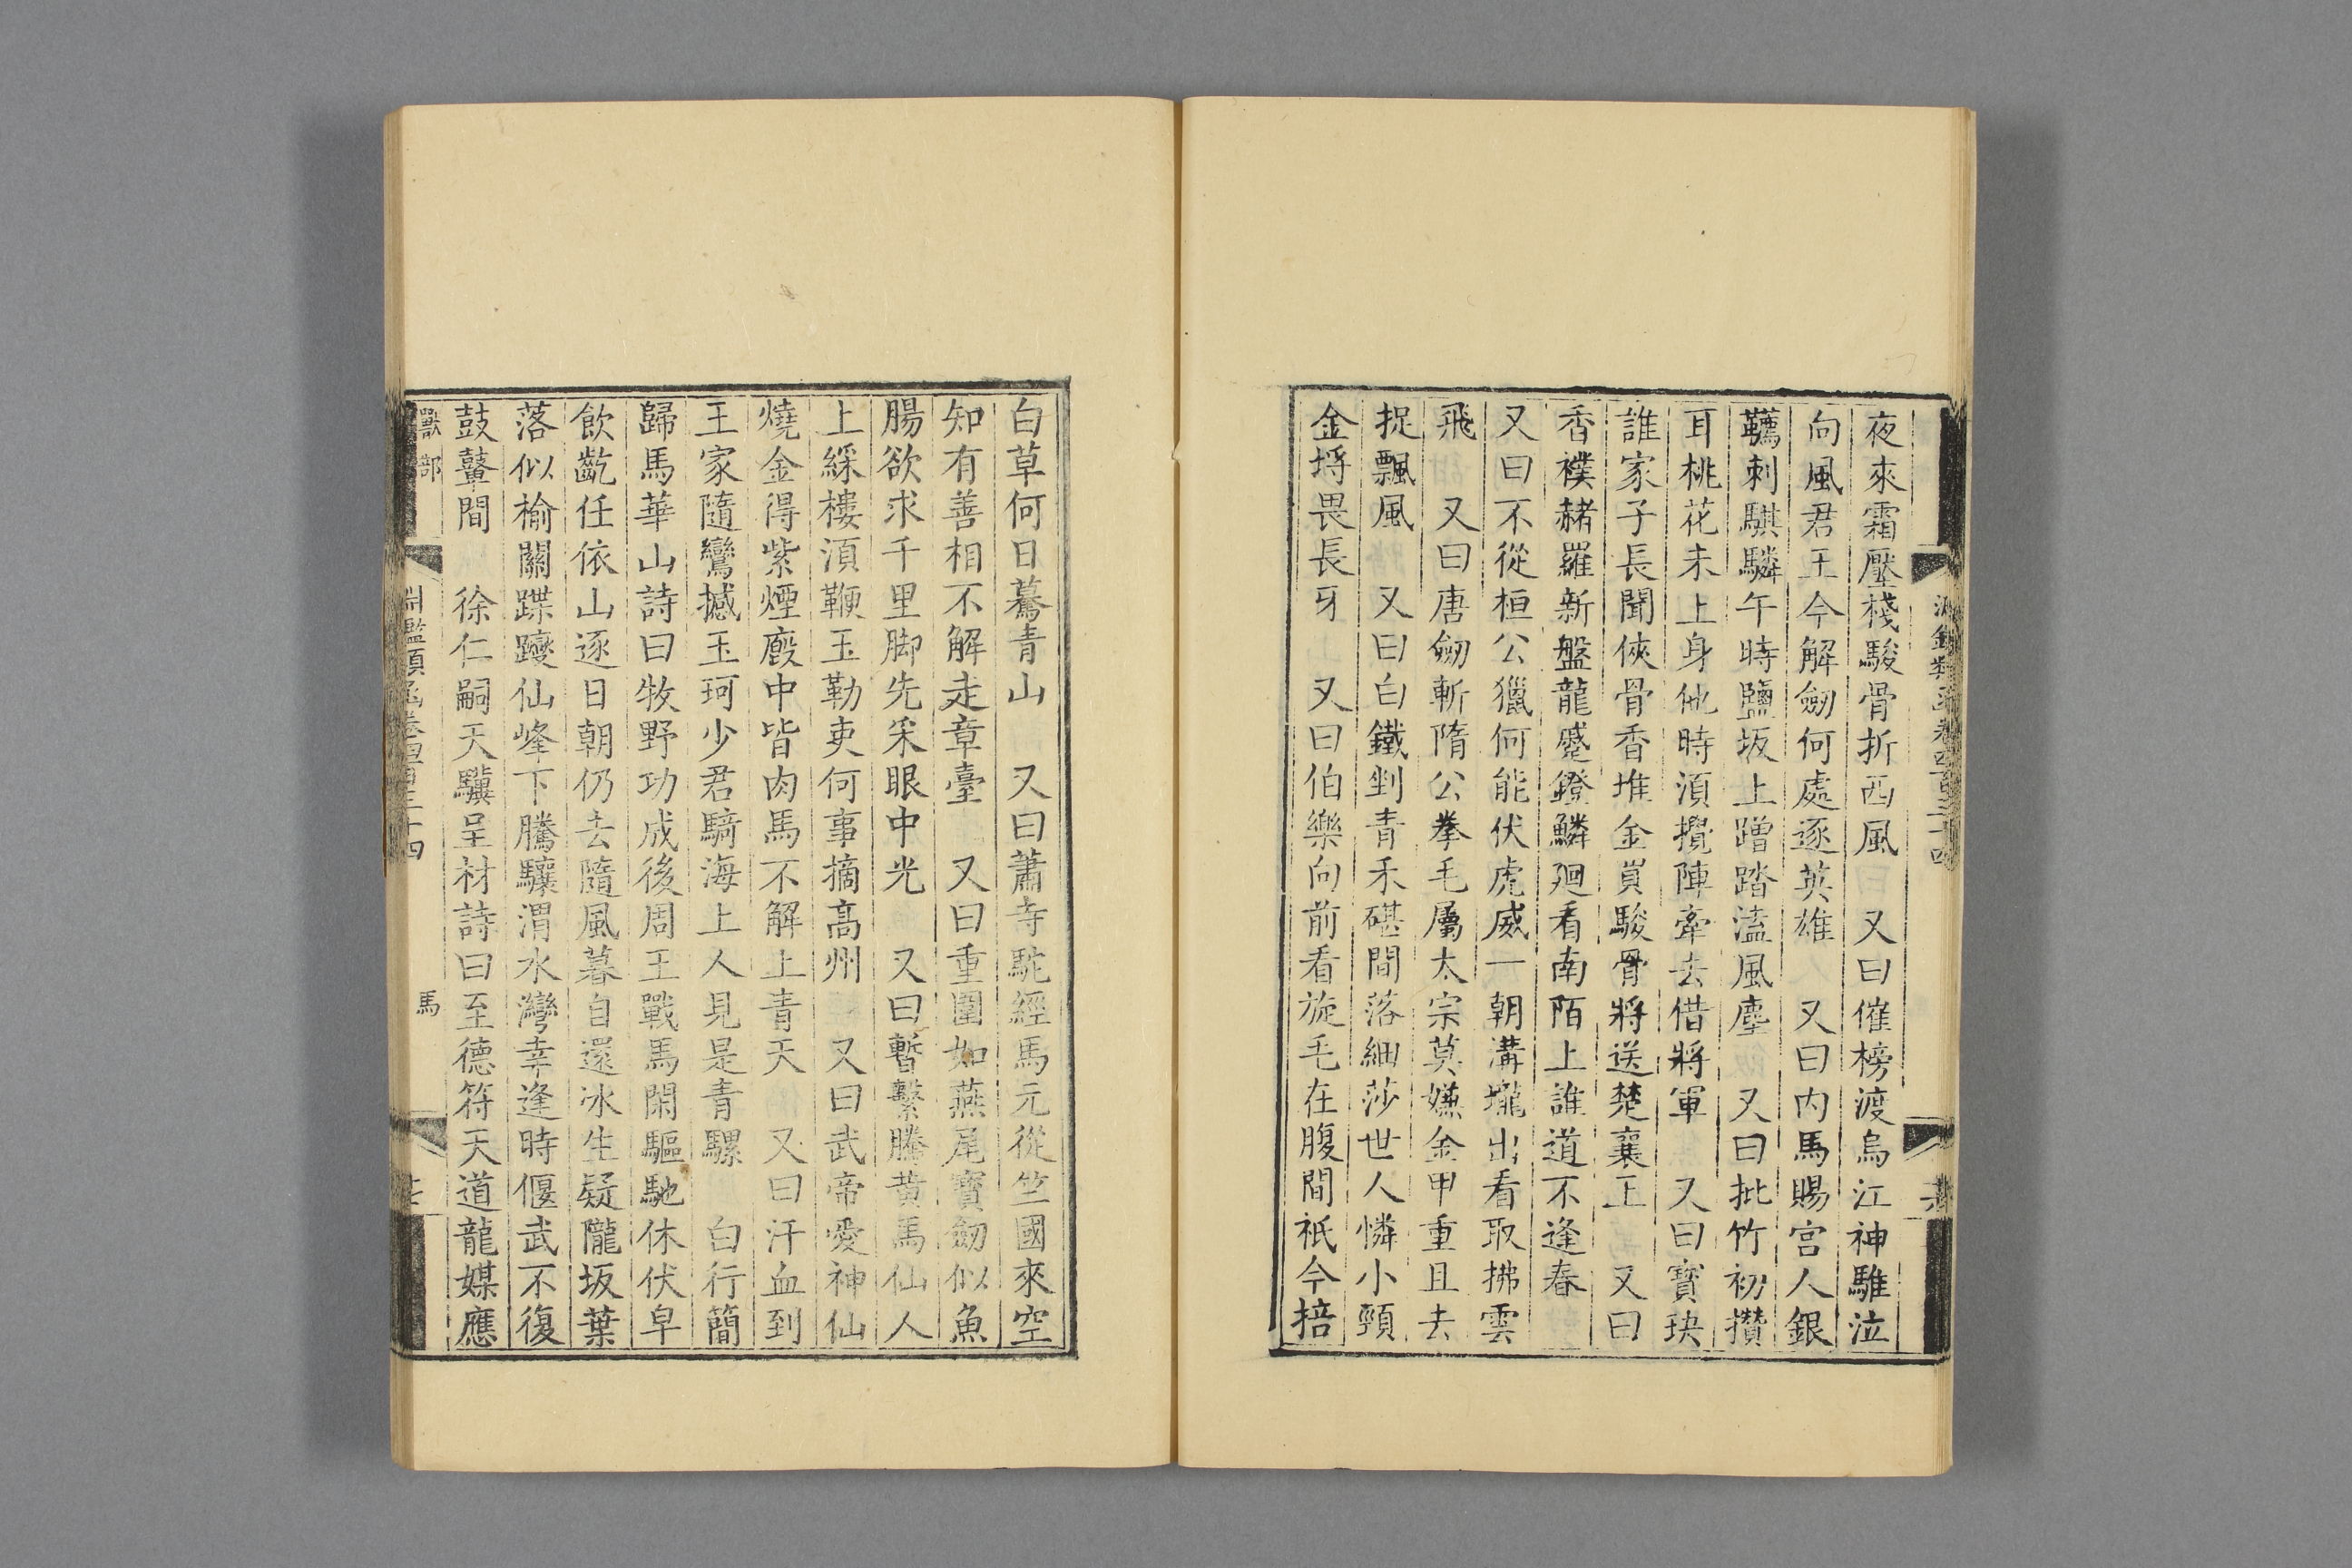 夜來霜壓棧駿骨折西風　又曰催榜渡烏江神騅泣
向風君王今解劒何處逐英雄　又曰內馬賜宮人銀
韉刺騏驎午時鹽坂上蹭踏溘風塵　又曰批竹初攢
耳桃花未上身他時湏攪陣牽去借將軍　又曰寶玦
誰家子長聞俠骨香堆金買駿骨將送楚襄王　又曰
香襆赭羅新盤龍蹙鐙鱗廻看南陌上誰道不逢春
又曰不從桓公獵何能伏虎威一朝溝壠出看取拂雲
飛　又曰唐劒斬隋公拳毛屬太宗莫嫌金甲重且去
捉飄風　又曰白鐵剉青禾碪間落細莎世人憐小頸
金埒畏長牙　又曰伯樂向前看旋毛在腹間秖今掊
白草何日驀青山　又曰蕭寺馱經馬元從竺國來空
知有善相不解走章臺　又曰重圍如燕尾寶劒似魚
腸欲求千里脚先采眼中光　又曰暫繫騰黃馬仙人
上綵樓湏鞭玉勒吏何事摘高州　又曰武帝愛神仙
燒金得紫煙廄中皆肉馬不解上青天　又曰汗血到
王家隨鸞撼玉珂少君騎海上人見是青騾　白行簡
歸馬華山詩曰牧野功成後周王戰馬閑驅馳休伏皁
飲齕任依山逐日朝仍去隨風暮自還冰生疑隴坂葉
落似榆關蹀躞仙峰下騰驤渭水灣幸逢時偃武不復
鼓鼙間　徐仁嗣天驥呈材詩曰至德符天道龍媒應
獸部
淵鑑類函卷四百三十四
馬